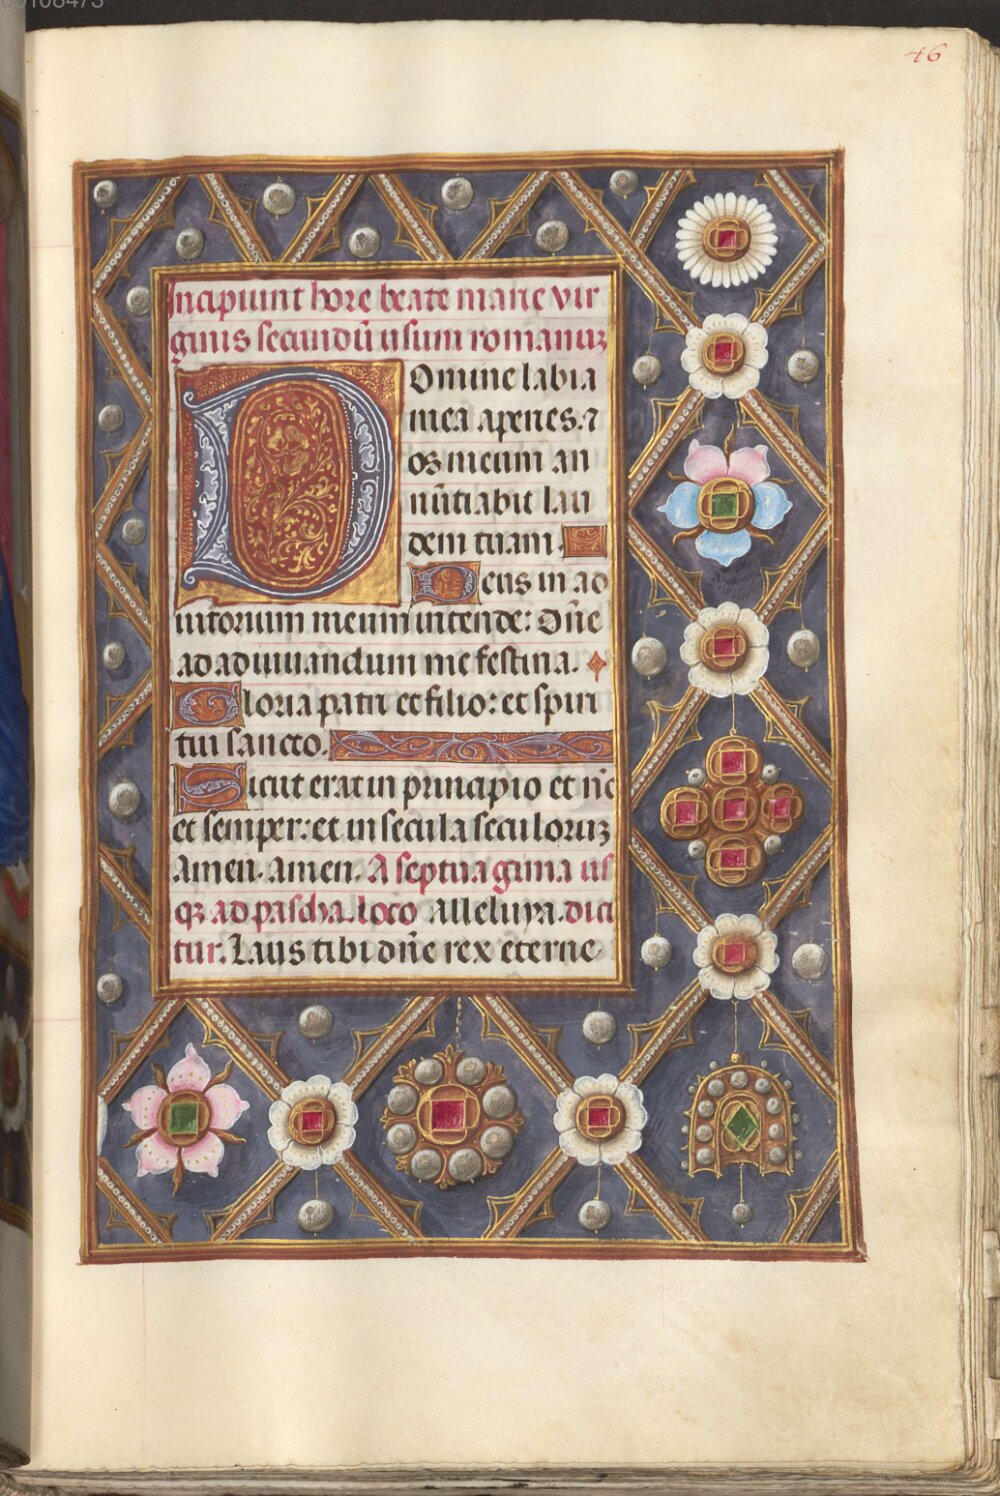 46
Incipiunt hore beate marie vir
ginis secundū usum romanuꝫ
Domine labia
mea aperies. ⁊
os meum an
nūtiabit lau
dem tuam.
Deus in ad
iutorium meum intende: Dn̄e
ad adiuuandum me festina.
Gloria patri et filio: et spiri
tui sancto.
Sicut erat in principio et nc̄
et semper: et in secula seculoruꝫ
Amen. Amen. A septuagima us
qꝫ ad pascha. loco Alleluya. dici
tur. Laus tibi dn̄e rex eterne